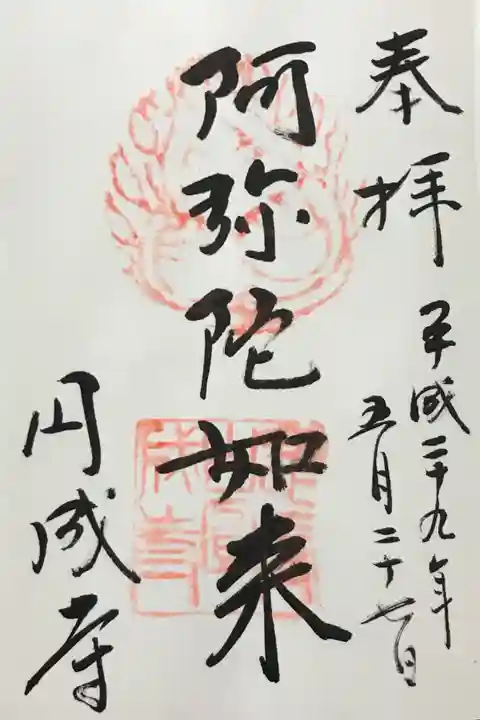 奉拝
平成二十九年
五月二十七日
阿弥陀如来
円成寺